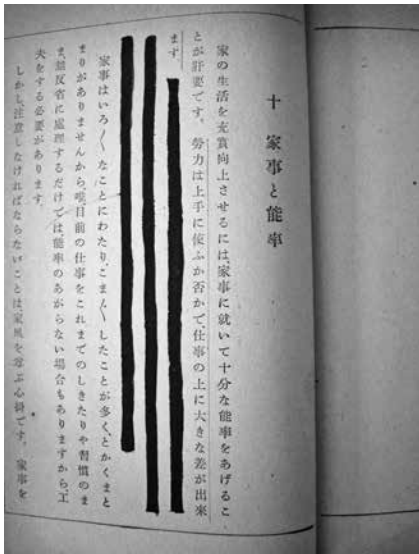 十 家事と能率
家の生活を充實向上させるには、家事に就いて十分な能率をあげるこ
とが肝要です。勞力は上手に使ふか否かで、仕事の上に大きな差が出來
ます。
家事はいろ〳〵なことにわたり、こま〴〵したことが多く、とかくまと
まりがありませんから、唯目前の仕事をこれまでのしきたりや習慣のま
ま、無反省に處理するだけでは、能率のあがらない場合もありますから、工
夫をする必要があります。
しかし、注意しなければならないことは家風を尊ぶ心掛です。家事を